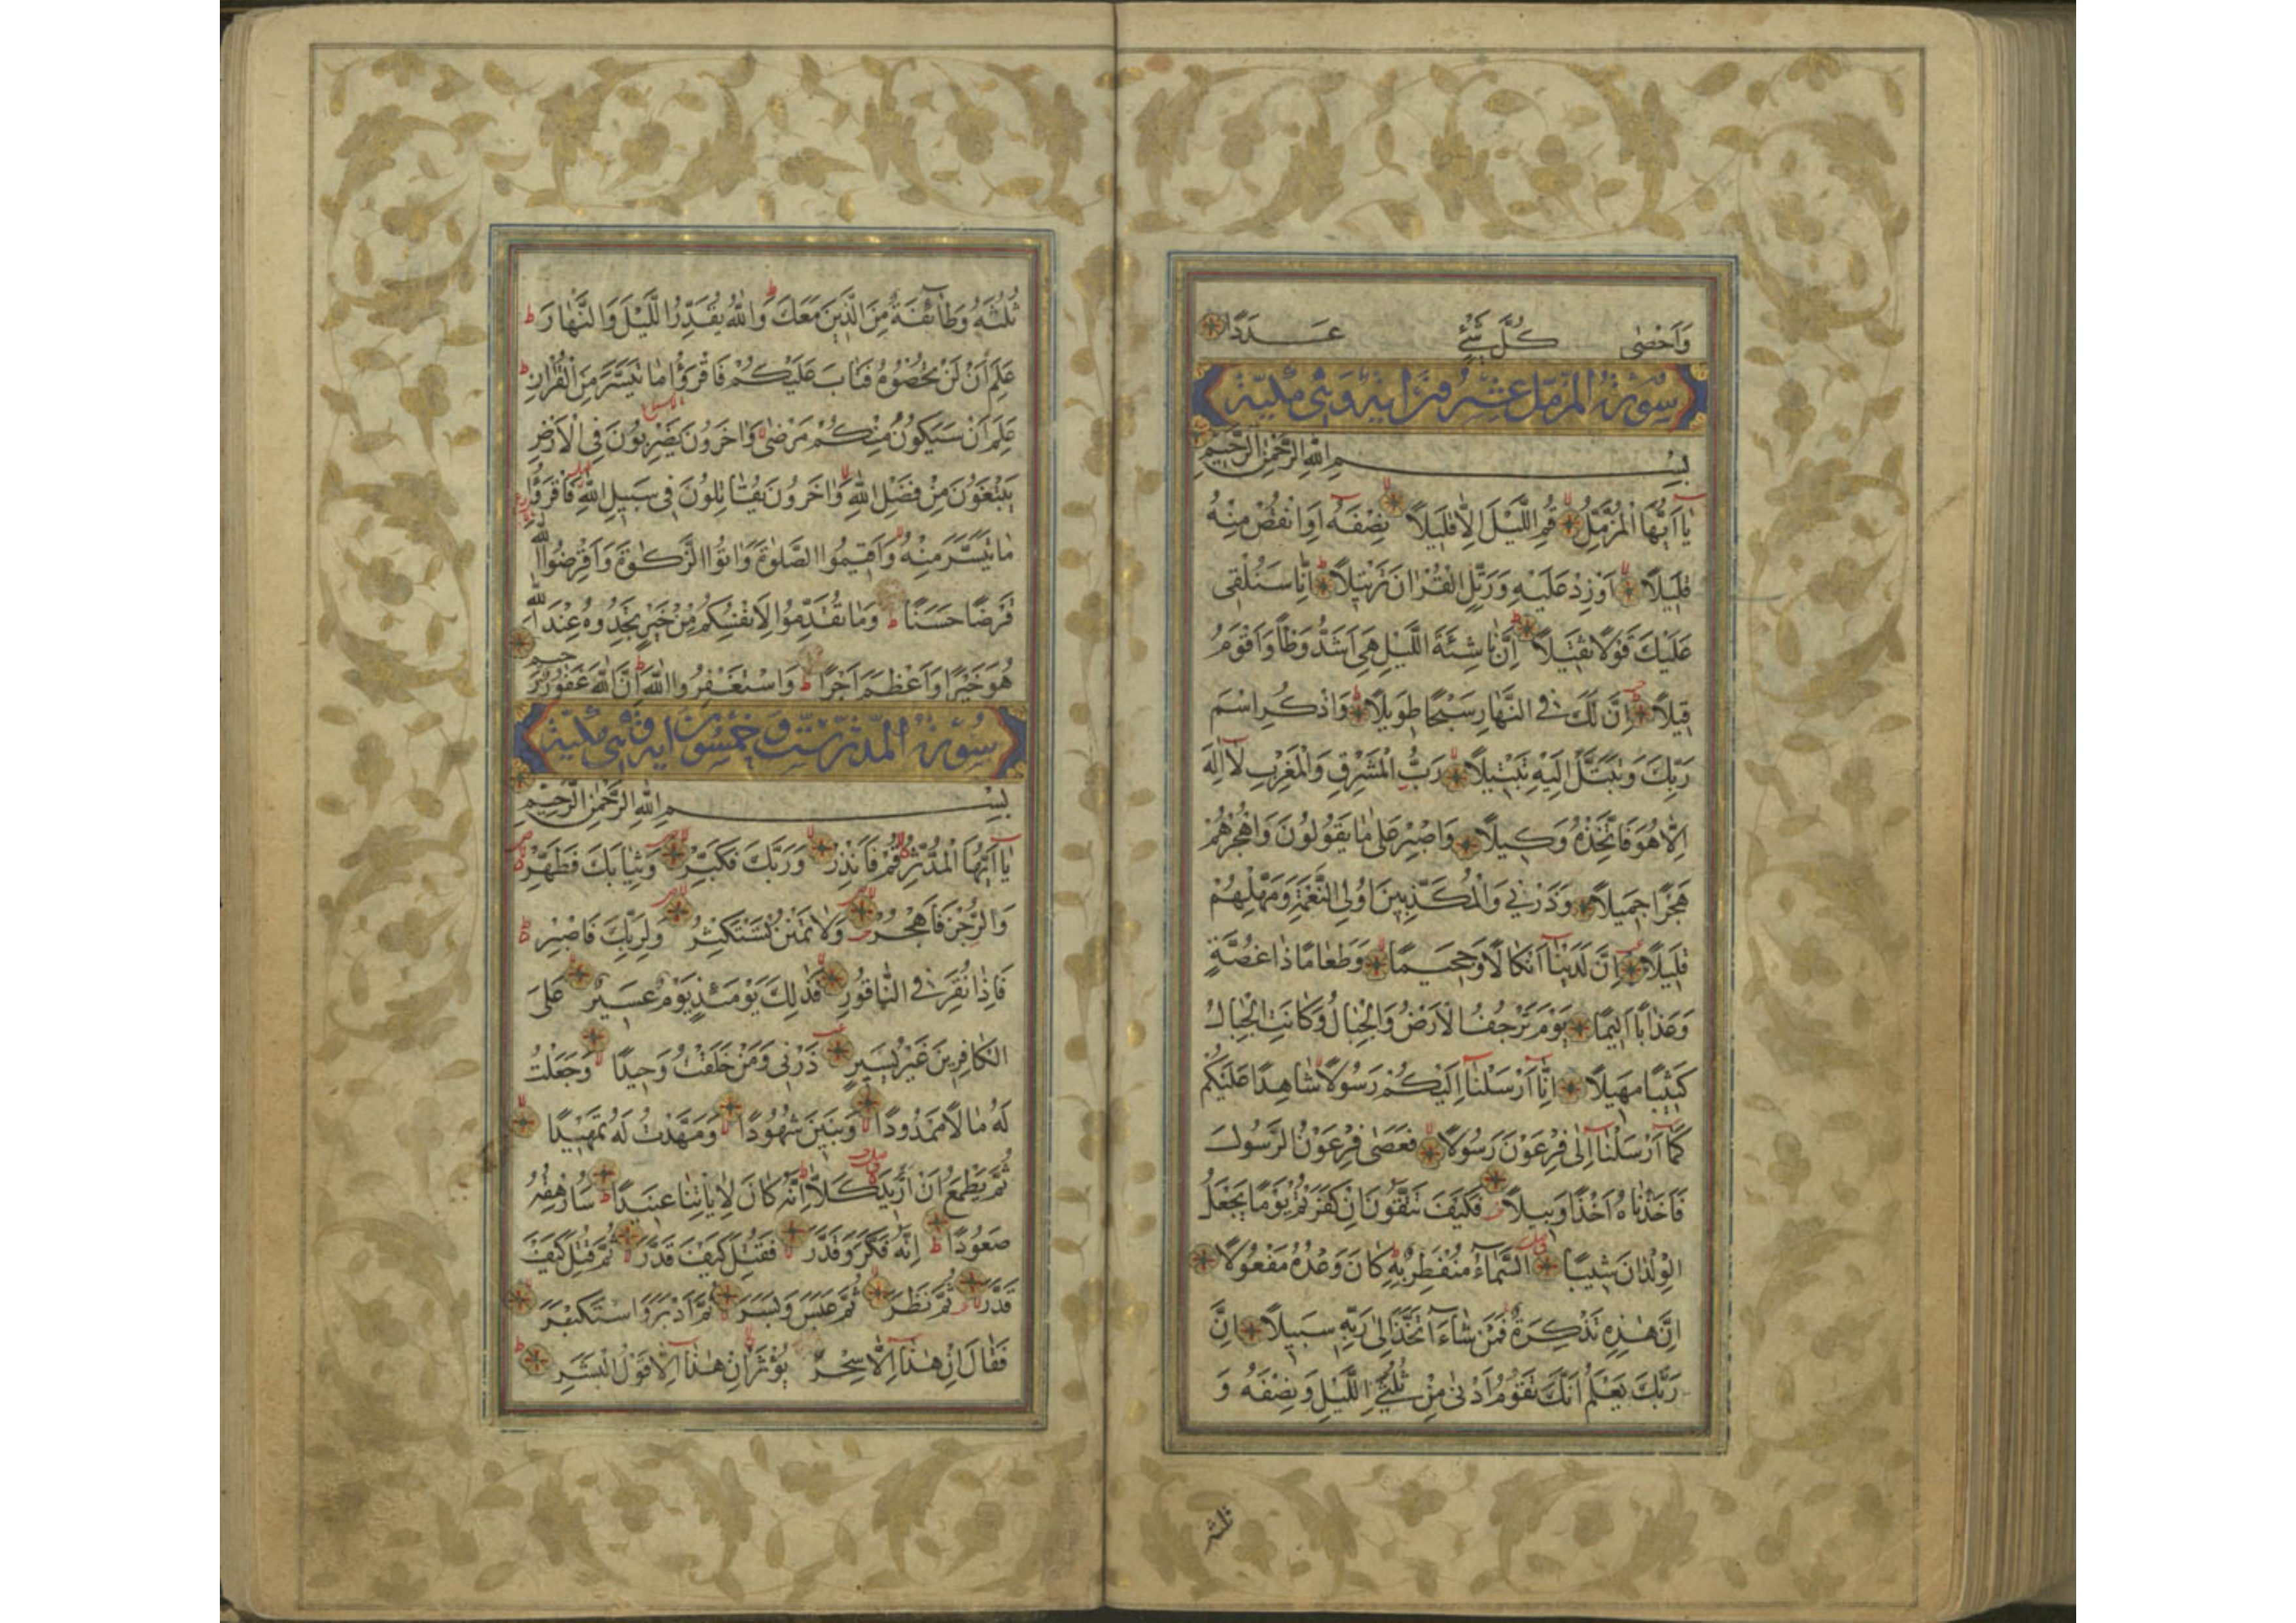 وَاَحْصٰى كُلَّ شَيْءٍ عَدَدًا
سورة المزمل عشرون اية وهي مكية
بِسْمِ اللهِ الرَّحْمٰنِ الرَّحِيْمِ
يٰٓا اَيُّهَا الْمُزَّمِّلُ قُمِ اللَّيْلَ اِلَّا قَلِيْلًا نِصْفَهُ اَوِ انْقُصْ مِنْهُ
قَلِيْلًا اَوْ زِدْ عَلَيْهِ وَرَتِّلِ الْقُرْاٰنَ تَرْتِيْلًا اِنَّا سَنُلْقِى
عَلَيْكَ قَوْلًا ثَقِيْلًا اِنَّ نَاشِئَةَ اللَّيْلِ هِىَ اَشَدُّ وَطْأً وَاَقْوَمُ
قِيْلًا اِنَّ لَكَ فِى النَّهَارِ سَبْحًا طَوِيْلًا وَاذْكُرِ اسْمَ
رَبِّكَ وَتَبَتَّلْ اِلَيْهِ تَبْتِيْلًا رَبُّ الْمَشْرِقِ وَالْمَغْرِبِ لَا اِلٰهَ
اِلَّا هُوَ فَاتَّخِذْهُ وَكِيْلًا وَاصْبِرْ عَلٰى مَا يَقُوْلُوْنَ وَاهْجُرْهُمْ
هَجْرًا جَمِيْلًا وَذَرْنِى وَالْمُكَذِّبِيْنَ اُولِى النَّعْمَةِ وَمَهِّلْهُمْ
قَلِيْلًا اِنَّ لَدَيْنَا اَنْكَالًا وَجَحِيْمًا وَطَعَامًا ذَا غُصَّةٍ
وَعَذَابًا اَلِيْمًا يَوْمَ تَرْجُفُ الْاَرْضُ وَالْجِبَالُ وَكَانَتِ الْجِبَالُ
كَثِيْبًا مَهِيْلًا اِنَّا اَرْسَلْنَا اِلَيْكُمْ رَسُوْلًا شَاهِدًا عَلَيْكُمْ
كَمَا اَرْسَلْنَا اِلٰى فِرْعَوْنَ رَسُوْلًا فَعَصٰى فِرْعَوْنُ الرَّسُوْلَ
فَاَخَذْنَاهُ اَخْذًا وَبِيْلًا فَكَيْفَ تَتَّقُوْنَ اِنْ كَفَرْتُمْ يَوْمًا يَجْعَلُ
الْوِلْدَانَ شِيْبًا السَّمَاءُ مُنْفَطِرٌ بِهِ كَانَ وَعْدُهُ مَفْعُوْلًا
اِنَّ هٰذِهِ تَذْكِرَةٌ فَمَنْ شَاءَ اتَّخَذَ اِلٰى رَبِّهِ سَبِيْلًا اِنَّ
رَبَّكَ يَعْلَمُ اَنَّكَ تَقُوْمُ اَدْنٰى مِنْ ثُلُثَىِ اللَّيْلِ وَنِصْفَهُ وَ
ثلثه
ثُلُثَهُ وَطَائِفَةٌ مِنَ الَّذِيْنَ مَعَكَ وَاللهُ يُقَدِّرُ اللَّيْلَ وَالنَّهَارَ
عَلِمَ اَنْ لَنْ تُحْصُوْهُ فَتَابَ عَلَيْكُمْ فَاقْرَؤُا مَا تَيَسَّرَ مِنَ الْقُرْاٰنِ
عَلِمَ اَنْ سَيَكُوْنُ مِنْكُمْ مَرْضٰى وَاٰخَرُوْنَ يَضْرِبُوْنَ فِى الْاَرْضِ
يَبْتَغُوْنَ مِنْ فَضْلِ اللهِ وَاٰخَرُوْنَ يُقَاتِلُوْنَ فِى سَبِيْلِ اللهِ فَاقْرَؤُا
مَا تَيَسَّرَ مِنْهُ وَاَقِيْمُوا الصَّلٰوةَ وَاٰتُوا الزَّكٰوةَ وَاَقْرِضُوا اللهَ
قَرْضًا حَسَنًا وَمَا تُقَدِّمُوْا لِاَنْفُسِكُمْ مِنْ خَيْرٍ تَجِدُوْهُ عِنْدَ اللهِ
هُوَ خَيْرًا وَاَعْظَمَ اَجْرًا وَاسْتَغْفِرُوا اللهَ اِنَّ اللهَ غَفُوْرٌ رَحِيْمٌ
سورة المدثر ست وخمسون اية وهي مكية
بِسْمِ اللهِ الرَّحْمٰنِ الرَّحِيْمِ
يٰٓا اَيُّهَا الْمُدَّثِّرُ قُمْ فَاَنْذِرْ وَرَبَّكَ فَكَبِّرْ وَثِيَابَكَ فَطَهِّرْ
وَالرُّجْزَ فَاهْجُرْ وَلَا تَمْنُنْ تَسْتَكْثِرُ وَلِرَبِّكَ فَاصْبِرْ
فَاِذَا نُقِرَ فِى النَّاقُوْرِ فَذٰلِكَ يَوْمَئِذٍ يَوْمٌ عَسِيْرٌ عَلَى
الْكَافِرِيْنَ غَيْرُ يَسِيْرٍ ذَرْنِى وَمَنْ خَلَقْتُ وَحِيْدًا وَجَعَلْتُ
لَهُ مَالًا مَمْدُوْدًا وَبَنِيْنَ شُهُوْدًا وَمَهَّدْتُ لَهُ تَمْهِيْدًا
ثُمَّ يَطْمَعُ اَنْ اَزِيْدَ كَلَّا اِنَّهُ كَانَ لِاٰيَاتِنَا عَنِيْدًا سَاُرْهِقُهُ
صَعُوْدًا اِنَّهُ فَكَّرَ وَقَدَّرَ فَقُتِلَ كَيْفَ قَدَّرَ ثُمَّ قُتِلَ كَيْفَ
قَدَّرَ ثُمَّ نَظَرَ ثُمَّ عَبَسَ وَبَسَرَ ثُمَّ اَدْبَرَ وَاسْتَكْبَرَ
فَقَالَ اِنْ هٰذَا اِلَّا سِحْرٌ يُؤْثَرُ اِنْ هٰذَا اِلَّا قَوْلُ الْبَشَرِ